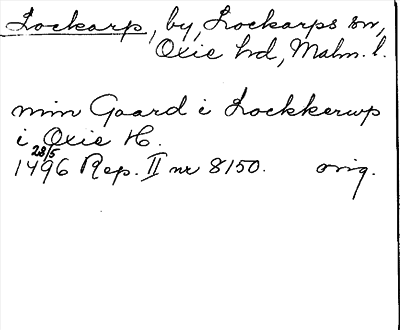 Lockarp, by, Lockarps sn,
Oxie hd, Malm. l.
min Gaard i Lockkerup
i Oxie H.
28/5
1496 Rep. II nr 8150. orig.